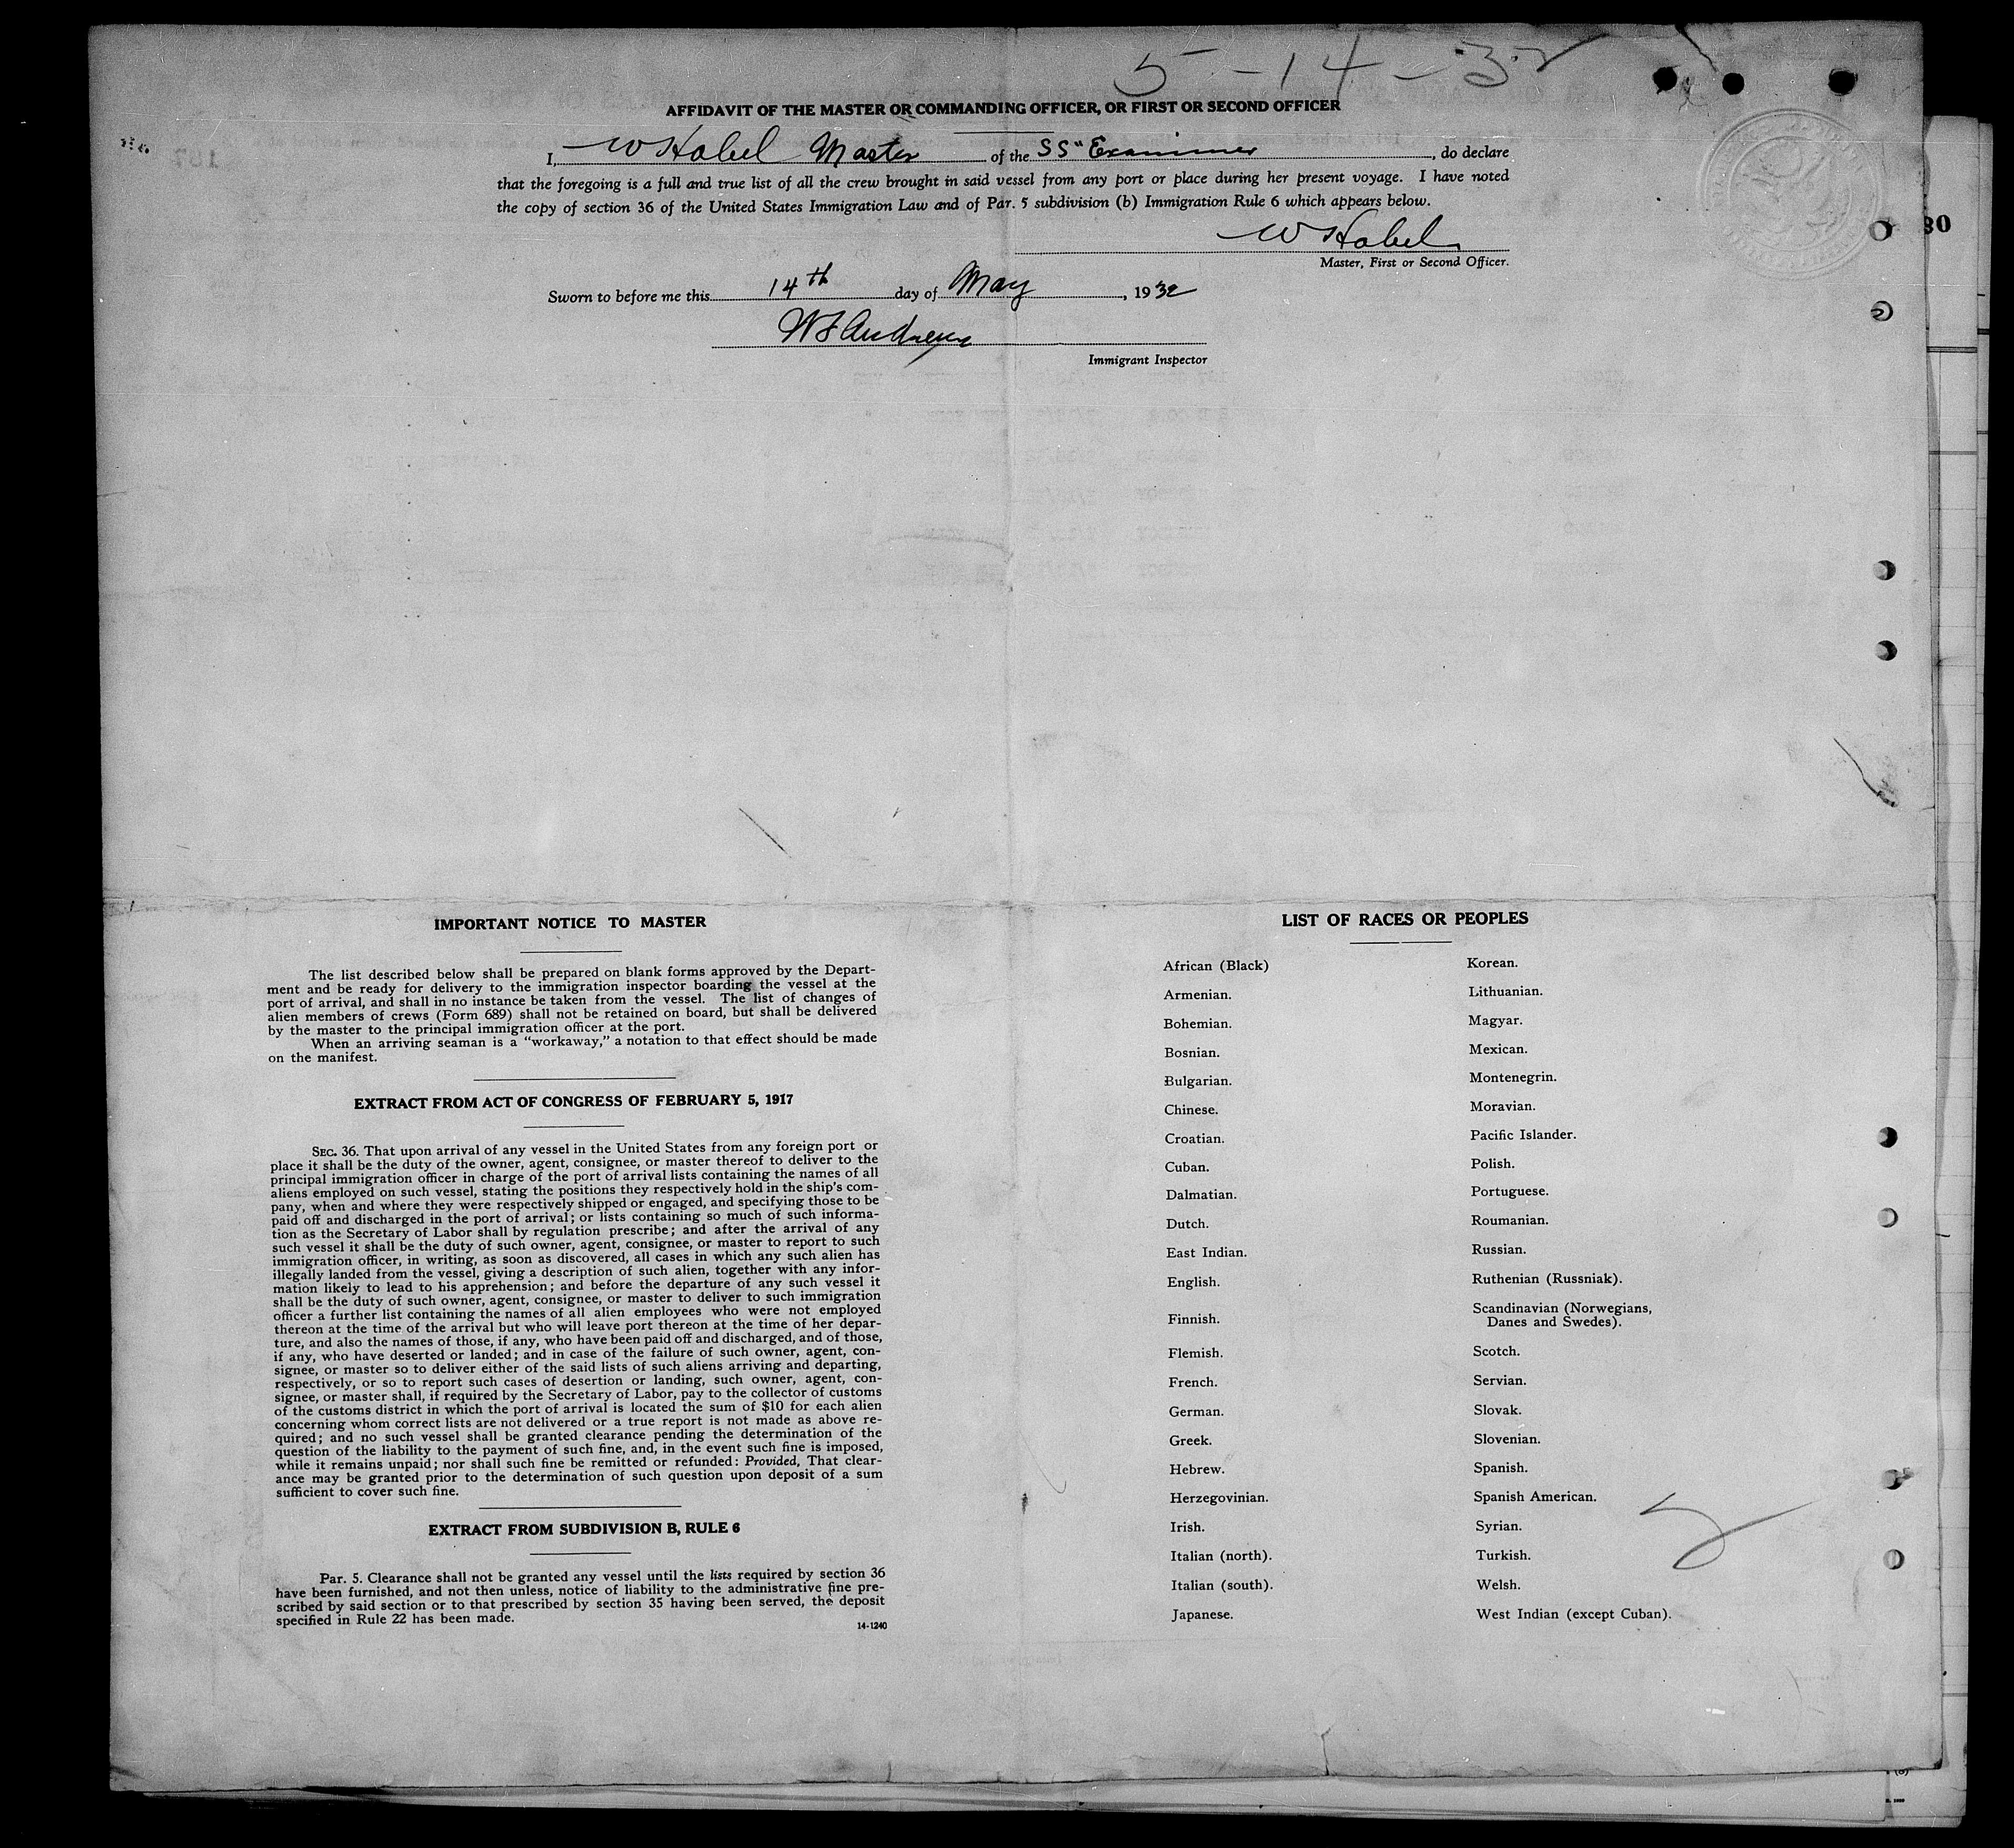 5-14-32
AFFIDAVIT OF THE MASTER OR COMMANDING OFFICER, OR FIRST OR SECOND OFFICER
I, W Habel Master of the SS "Examiner, do declare
that the foregoing is a full and true list of all the crew brought in said vessel from any port or place during her present voyage. I have noted
the copy of section 36 of the United States Immigration Law and of Par. 5 subdivision (b) Immigration Rule 6 which appears below.
W Habel
Master, First or Second Officer.
Sworn to before me this 14th day of May, 1932
Andrews
Immigrant Inspector
30
IMPORTANT NOTICE TO MASTER
The list described below shall be prepared on blank forms approved by the Depart-
ment and be ready for delivery to the immigration inspector boarding the vessel at the
port of arrival, and shall in no instance be taken from the vessel. The list of changes of
alien members of crews (Form 689) shall not be retained on board, but shall be delivered
by the master to the principal immigration officer at the port.
When an arriving seaman is a "workaway," a notation to that effect should be made
on the manifest.
EXTRACT FROM ACT OF CONGRESS OF FEBRUARY 5, 1917
SEC. 36. That upon arrival of any vessel in the United States from any foreign port or
place it shall be the duty of the owner, agent, consignee, or master thereof to deliver to the
principal immigration officer in charge of the port of arrival lists containing the names of all
aliens employed on such vessel, stating the positions they respectively hold in the ship's com-
pany, when and where they were respectively shipped or engaged, and specifying those to be
paid off and discharged in the port of arrival; or lists containing so much of such informa-
tion as the Secretary of Labor shall by regulation prescribe; and after the arrival of any
such vessel it shall be the duty of such owner, agent, consignee, or master to report to such
immigration officer, in writing, as soon as discovered, all cases in which any such alien has
illegally landed from the vessel, giving a description of such alien, together with any infor-
mation likely to lead to his apprehension; and before the departure of any such vessel it
shall be the duty of such owner, agent, consignee, or master to deliver to such immigration
officer a further list containing the names of all alien employees who were not employed
thereon at the time of the arrival but who will leave port thereon at the time of her depar-
ture, and also the names of those, if any, who have been paid off and discharged, and of those,
if any, who have deserted or landed; and in case of the failure of such owner, agent, con-
signee, or master so to deliver either of the said lists of such aliens arriving and departing,
respectively, or so to report such cases of desertion or landing, such owner, agent, con-
signee, or master shall, if required by the Secretary of Labor, pay to the collector of customs
of the customs district in which the port of arrival is located the sum of $10 for each alien
concerning whom correct lists are not delivered or a true report is not made as above re-
quired; and no such vessel shall be granted clearance pending the determination of the
question of the liability to the payment of such fine, and, in the event such fine is imposed,
while it remains unpaid; nor shall such fine be remitted or refunded: Provided, That clear-
ance may be granted prior to the determination of such question upon deposit of a sum
sufficient to cover such fine.
EXTRACT FROM SUBDIVISION B, RULE 6
Par. 5. Clearance shall not be granted any vessel until the lists required by section 36
have been furnished, and not then unless, notice of liability to the administrative fine pre-
scribed by said section or to that prescribed by section 35 having been served, the deposit
specified in Rule 22 has been made.
14-1240
LIST OF RACES OR PEOPLES
African (Black)
Armenian.
Bohemian.
Bosnian.
Bulgarian.
Chinese.
Croatian.
Cuban.
Dalmatian.
Dutch.
East Indian.
English.
Finnish.
Flemish.
French.
German.
Greek.
Hebrew.
Herzegovinian.
Irish.
Italian (north).
Italian (south).
Japanese.
Korean.
Lithuanian.
Magyar.
Mexican.
Montenegrin.
Moravian.
Pacific Islander.
Polish.
Portuguese.
Roumanian.
Russian.
Ruthenian (Russniak).
Scandinavian (Norwegians,
Danes and Swedes).
Scotch.
Servian.
Slovak.
Slovenian.
Spanish.
Spanish American.
Syrian.
Turkish.
Welsh.
West Indian (except Cuban).